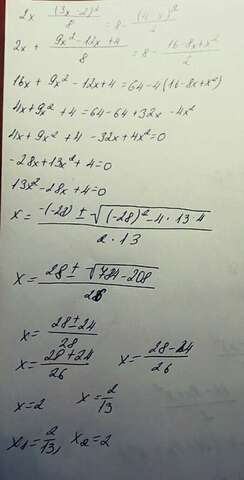 2x (3x-2)²/8 = 8 - (4-x)²/2
2x + (9x²-12x+4)/8 = 8 - (16-8x+x²)/2
16x + 9x² - 12x + 4 = 64 - 4(16-8x+x²)
4x + 9x² + 4 = 64 - 64 + 32x - 4x²
4x + 9x² + 4 - 32x + 4x² = 0
-28x + 13x² + 4 = 0
13x² - 28x + 4 = 0
x = (-(-28) ± √((-28)² - 4·13·4))/(2·13)
x = (28 ± √(784-208))/26
x = (28 ± 24)/26
x = (28+24)/26 x = (28-24)/26
x = 2 x = 2/13
x₁ = 2/13, x₂ = 2